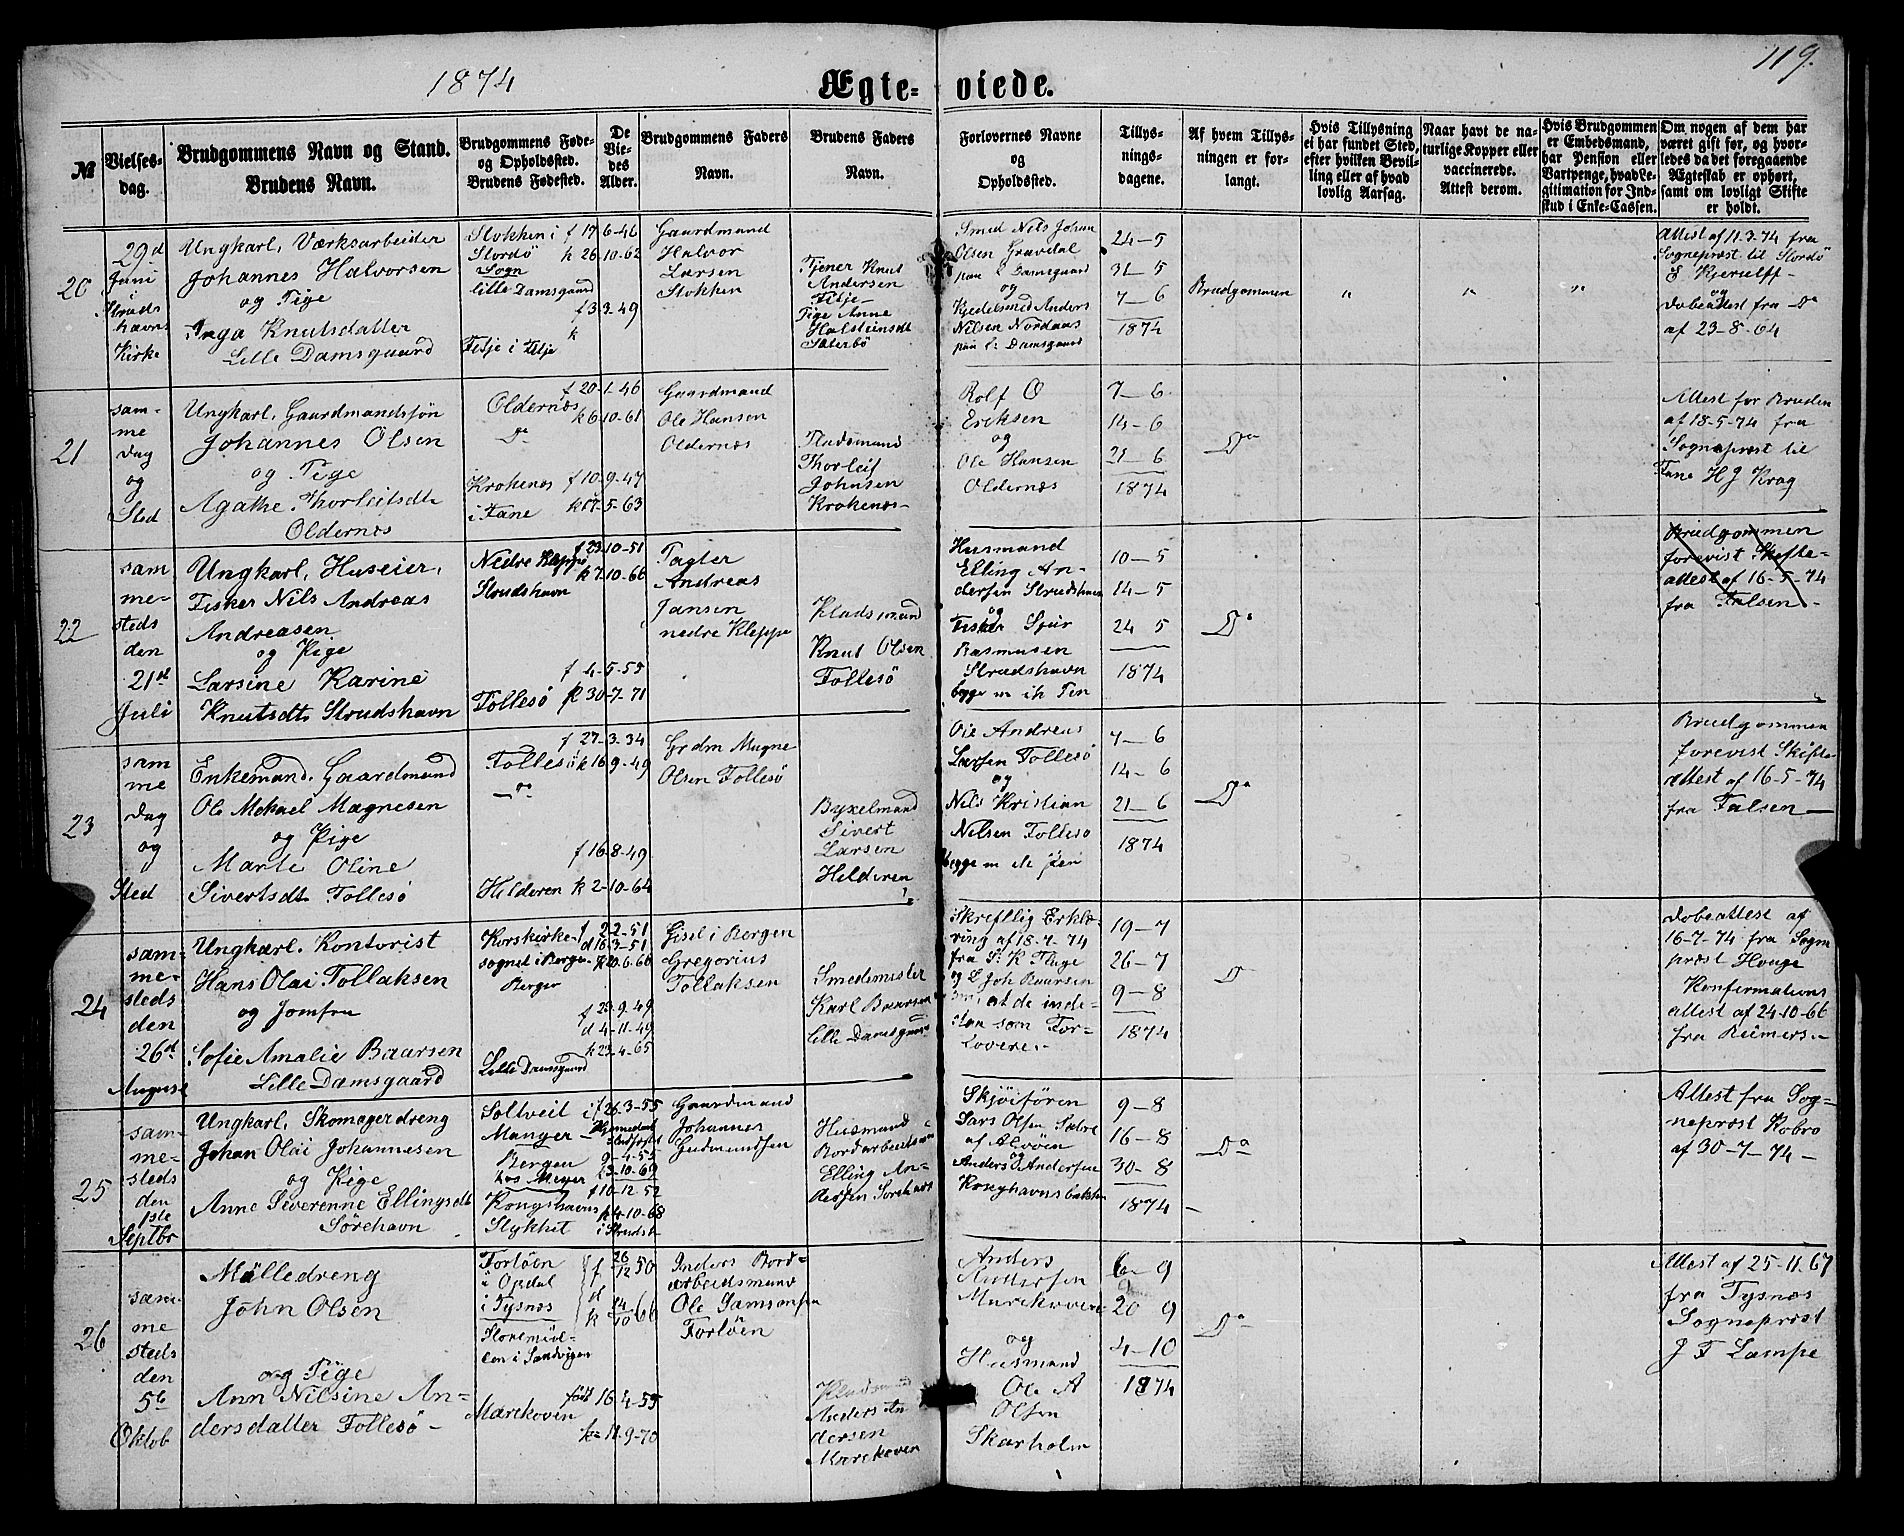 119.
1874
Ægte- viede.
№
Vielses-
dag.
Brudgommens Navn og Stand.
Brudens Navn.
Brudgommens Føde-
og Opholdssted.
Brudens Fødested.
De
Vie-
des
Alder.
Brudgommens Faders
Navn.
Brudens Faders
Navn.
Forlovernes Navne
og
Opholdssted.
Tillys-
nings-
dagene.
Af hvem Tillys-
ningen er for-
langt.
Hvis Tillysning
ei har fundet Sted,
efter hvilken Bevil-
ling eller af hvad
lovlig Aarsag.
Naar havt de na-
turlige Kopper eller
vaccinerede.
Attest derom.
Hvis Brudgommen
er Embedsmand,
har Pension eller
Vartpenge, hvad Le-
gitimation for Ind-
skud i Enke-Cassen.
Om nogen af dem har
været gift før, og hvor-
ledes da det foregaaende
Ægteskab er ophørt,
samt om lovligt Skifte
er holdt.
20
29d
Juni
i
Struds
havns
Kirke
Ungkarl, Værksarbeider
Johannes Halvorsen
og Pige
Inga Knutsdatter
Lille Damsgaard
Stokken i
Stordö
Sogn
Lille Damsgaard
Fitje i Fitje
f 17-6-46
k 26-10-62
f 3-3-49
k
Gaardmand
Halvor
Larsen
Stokken
Tjener Knut
Andersen
Fitje-
Pige Anne
Halsteinsdt
Sæterbö
Smed Nils Johan
Olsen Gravdal
paa L Damsgaard
og
Kjedelsmed Anders
Nilsen Nordaas
paa L: Damsgaard
24-5
31-5
7-6
1874
Brudgommen
"
"
"
Attest af 11-3-74 fra
Sogneprest til Stordö
E Kjerulff-
og
Döbeattest fra Do
af 23-8-64
21
sam-
me
Dag
og
Sted
Ungkarl, Gaardmandssön
Johannes Olsen
og Pige
Agathe Thorleifsdt
Oldernæs
Oldernæs
Do
Krokenes
i Fane
f 20-1-46
k 6-10-61
f 10-9-47
k 17-5-63
Gaardmand
Ole Hansen
Oldernæs
Pladsmand
Thorleif
Johnsen
Krokenæs-
Rolf O
Eriksen
og
Ole Hansen
Oldernæs
7-6
14-6
21-6
1874
Do
Attest for Bruden
af 18-5-74 fra
Sogneprest til
Fane H J Krag
22
sam
me-
steds
den
21st
Juli
Ungkarl, Huseier,
Fisker Nils Andreas
Andreasen
og Pige
Larsine Karine
Knutsdt Strudshavn
Nedre Kleppe
Strudshavn
Follesö
f 23-10-51
k 7-10-66
f 4-5-55
k 30-7-71
Andreas
Jansen
nedre Kleppe
Pladsmand
Knut Olsen
Follesö
Husmand
Elling An-
dersen Strudshavn
og
Fisker Sjur
Rasmusen
Strudshavn
10-5
14-5
24 5
1874
Do
Brudgommen
forevist Skifte-
attest af 16-5-74
fra Falsen-
23
sam
me
Dag
og
Sted
Enkemand, Gaardmand
Ole Mikael Magnesen
og Pige
Marte Oline
Sivertsdt Follesö
Follesö
Do
Hilderen
f 27-3-34
k 16-9-49
f 16-8-49
k 2-10-64
Grdm Magne
Olsen Follesö
Byxelmand
Sivert
Larsen
Hilderen
Ole Andreas
Larsen Follesö
og
Nils Kristian
Nilsen Follesö
7-6
14-6
21-6
1874
Do
Brudgommen
forevist Skifte-
attest af 16-5-74
fra Falsen-
24
sam-
me-
steds
den
26d
August
Ungkarl, Kontorist
Hans Olai Tollaksen
og Jomfru
Sofie Amalie Baarsen
Lille Damsgaard
Korskirke-
sognet i Bergen
Bergen
Lille Damsgaard
f 2-2-51
d 16-3-51
f 29-9-49
d 4-11-49
k 23-4-65
Gisel i Bergen
Gregorius
Tollaksen
Smedemester
Karl Baarsen
Lille Damsgaard
Skriftlig Erklæ-
ring af 18-7-74
og L Joh Baarsen
om, at de inde-
staa som For-
lovere.-
19-7
26-7
9-8
1874
Do
Döbeattest af
16-7-74 fra Sogne
prest Hauge
Konfirmations
attest af 24-10-66
fra Reimers.-
25
sam-
me-
steds
den
1ste
Septbr
Ungkarl, Skomagerdreng
Johan Olai Johannesen
og Pige
Anne Severenne Ellingsdt
Sörehavn
Soltveit i
Manger-
Bergen
hos Meyer
Kongshavns
Stykket
f 26-3-55
9-4-55
k 4-10-68
i Strudsh
f 10-12-52
Gaardmand
Johannes
Gudmundsen
Husmand
Bordarbeidsm
Elling An-
dersen Sörehavn
Skjöifören
Lars Olsen
af Alvöen
og
Anders Andersen
9-8
16-8
30-8
1874-
Do
Attest fra Sog=
neprest Kobro
af 30-7-74-
26
sam-
me
steds
den
5te
Oktob
Mölledreng
John Olsen
og Pige
Ann Nilsine An-
dersdatter Follesö-
Forlöen
i Opdal
i Tysnæs
Storemöl-
len i Sandvigen
Marekoven
f 26/12 50
d
k 14/10 66
född 16-4-55
k= 11-9-70
Inders Bord=
arbeidsmand
Ole Samsonsen
Forlöen
Pladsmand
Anders An
dersen
Marekoven
Anders
Andersen
Marekoven
og
Husmand
Ole A
Olsen
Skarholm
6-9
20 9
4-10
1874
Do
Attest af 25-11-67
fra Tysnæs
Sogneprest
J F Lampe